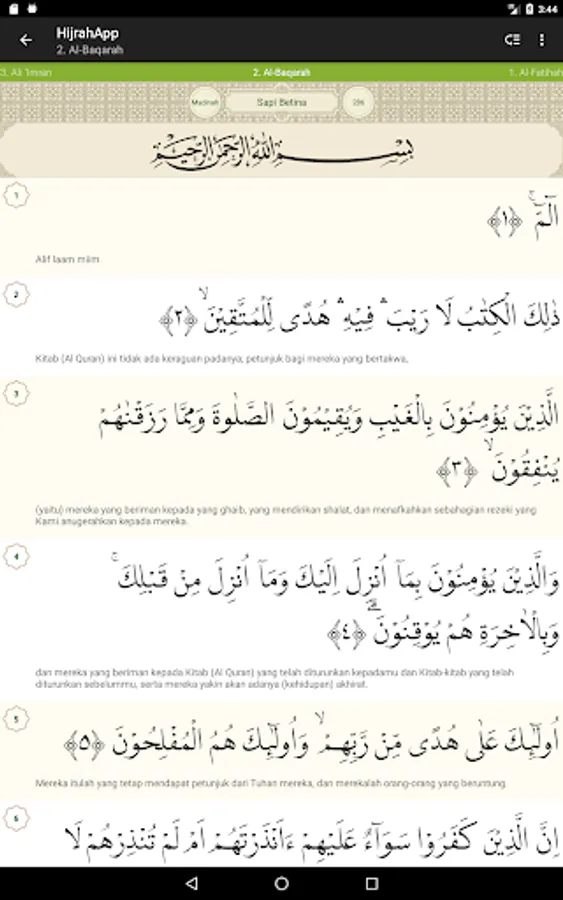 3:44
HijrahApp
2. Al-Baqarah
3. Ali 'Imran
2. Al-Baqarah
1. Al-Fatihah
Madinah
Sapi Betina
286
بِسْمِ اللّٰهِ الرَّحْمٰنِ الرَّحِيْمِ
1
الٓمّٓ ۚ ﴿١﴾
Alif laam miim
2
ذٰلِكَ الْكِتٰبُ لَا رَيْبَ ۛ فِيْهِ ۛ هُدًى لِّلْمُتَّقِيْنَ ۙ ﴿٢﴾
Kitab (Al Quran) ini tidak ada keraguan padanya; petunjuk bagi mereka yang bertakwa,
3
الَّذِيْنَ يُؤْمِنُوْنَ بِالْغَيْبِ وَيُقِيْمُوْنَ الصَّلٰوةَ وَمِمَّا رَزَقْنٰهُمْ
يُنْفِقُوْنَ ۙ ﴿٣﴾
(yaitu) mereka yang beriman kepada yang ghaib, yang mendirikan shalat, dan menafkahkan sebahagian rezeki yang
Kami anugerahkan kepada mereka.
4
وَالَّذِيْنَ يُؤْمِنُوْنَ بِمَآ اُنْزِلَ اِلَيْكَ وَمَآ اُنْزِلَ مِنْ قَبْلِكَ ۚ
وَبِالْاٰخِرَةِ هُمْ يُوْقِنُوْنَ ﴿٤﴾
dan mereka yang beriman kepada Kitab (Al Quran) yang telah diturunkan kepadamu dan Kitab-kitab yang telah
diturunkan sebelummu, serta mereka yakin akan adanya (kehidupan) akhirat.
5
اُولٰٓئِكَ عَلٰى هُدًى مِّنْ رَّبِّهِمْ ۙ وَاُولٰٓئِكَ هُمُ الْمُفْلِحُوْنَ ﴿٥﴾
Mereka itulah yang tetap mendapat petunjuk dari Tuhan mereka, dan merekalah orang-orang yang beruntung.
6
اِنَّ الَّذِيْنَ كَفَرُوْا سَوَآءٌ عَلَيْهِمْ ءَاَنْذَرْتَهُمْ اَمْ لَمْ تُنْذِرْهُمْ لَا